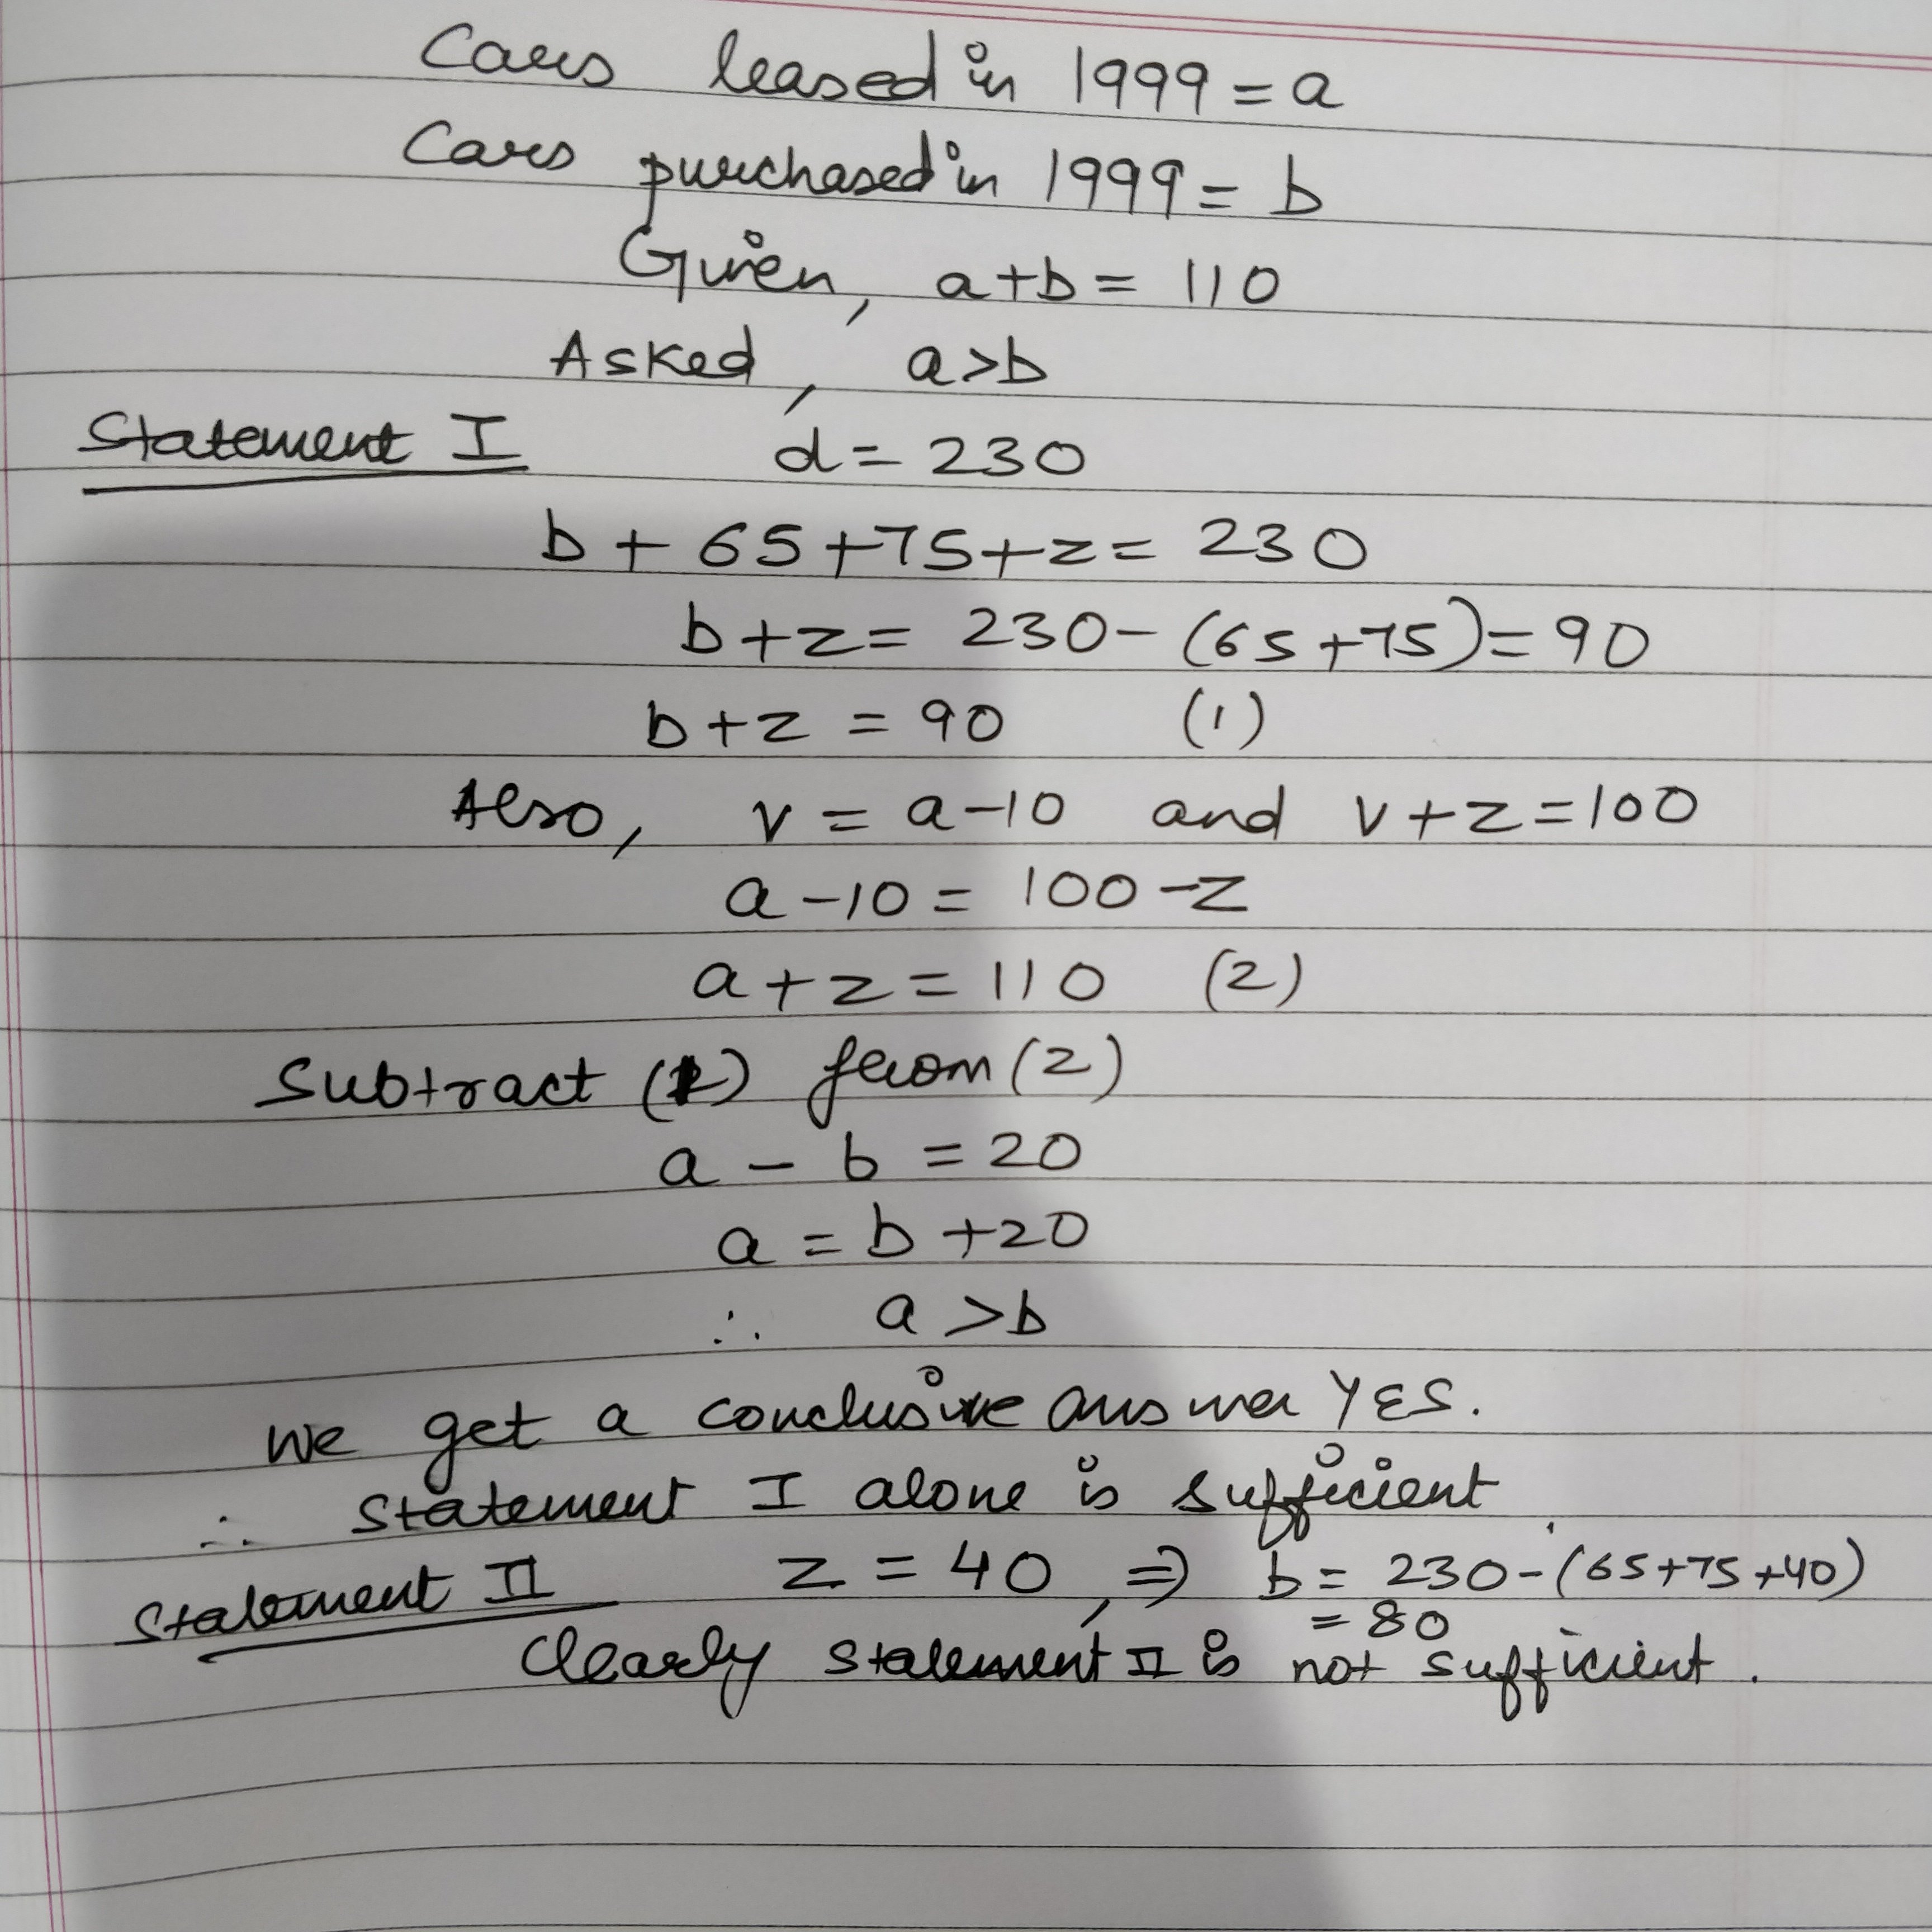 Cars leased in 1999 = a
Cars purchased in 1999 = b
Given, a+b = 110
Asked, a>b
Statement I d = 230
b + 65+75+z = 230
b+z = 230 - (65+75) = 90
b+z = 90 (1)
Also, v = a-10 and v+z = 100
a-10 = 100-z
a+z = 110 (2)
Subtract (1) from (2)
a - b = 20
a = b+20
∴ a >b
We get a conclusive answer YES.
∴ Statement I alone is sufficient
Statement II z = 40, ⇒ b = 230-(65+75+40)
= 80
Clearly statement II is not sufficient.